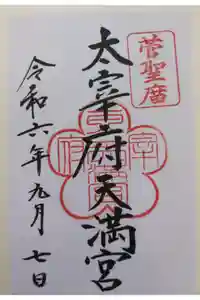 菅聖廟
太宰府天満宮
令和六年九月七日